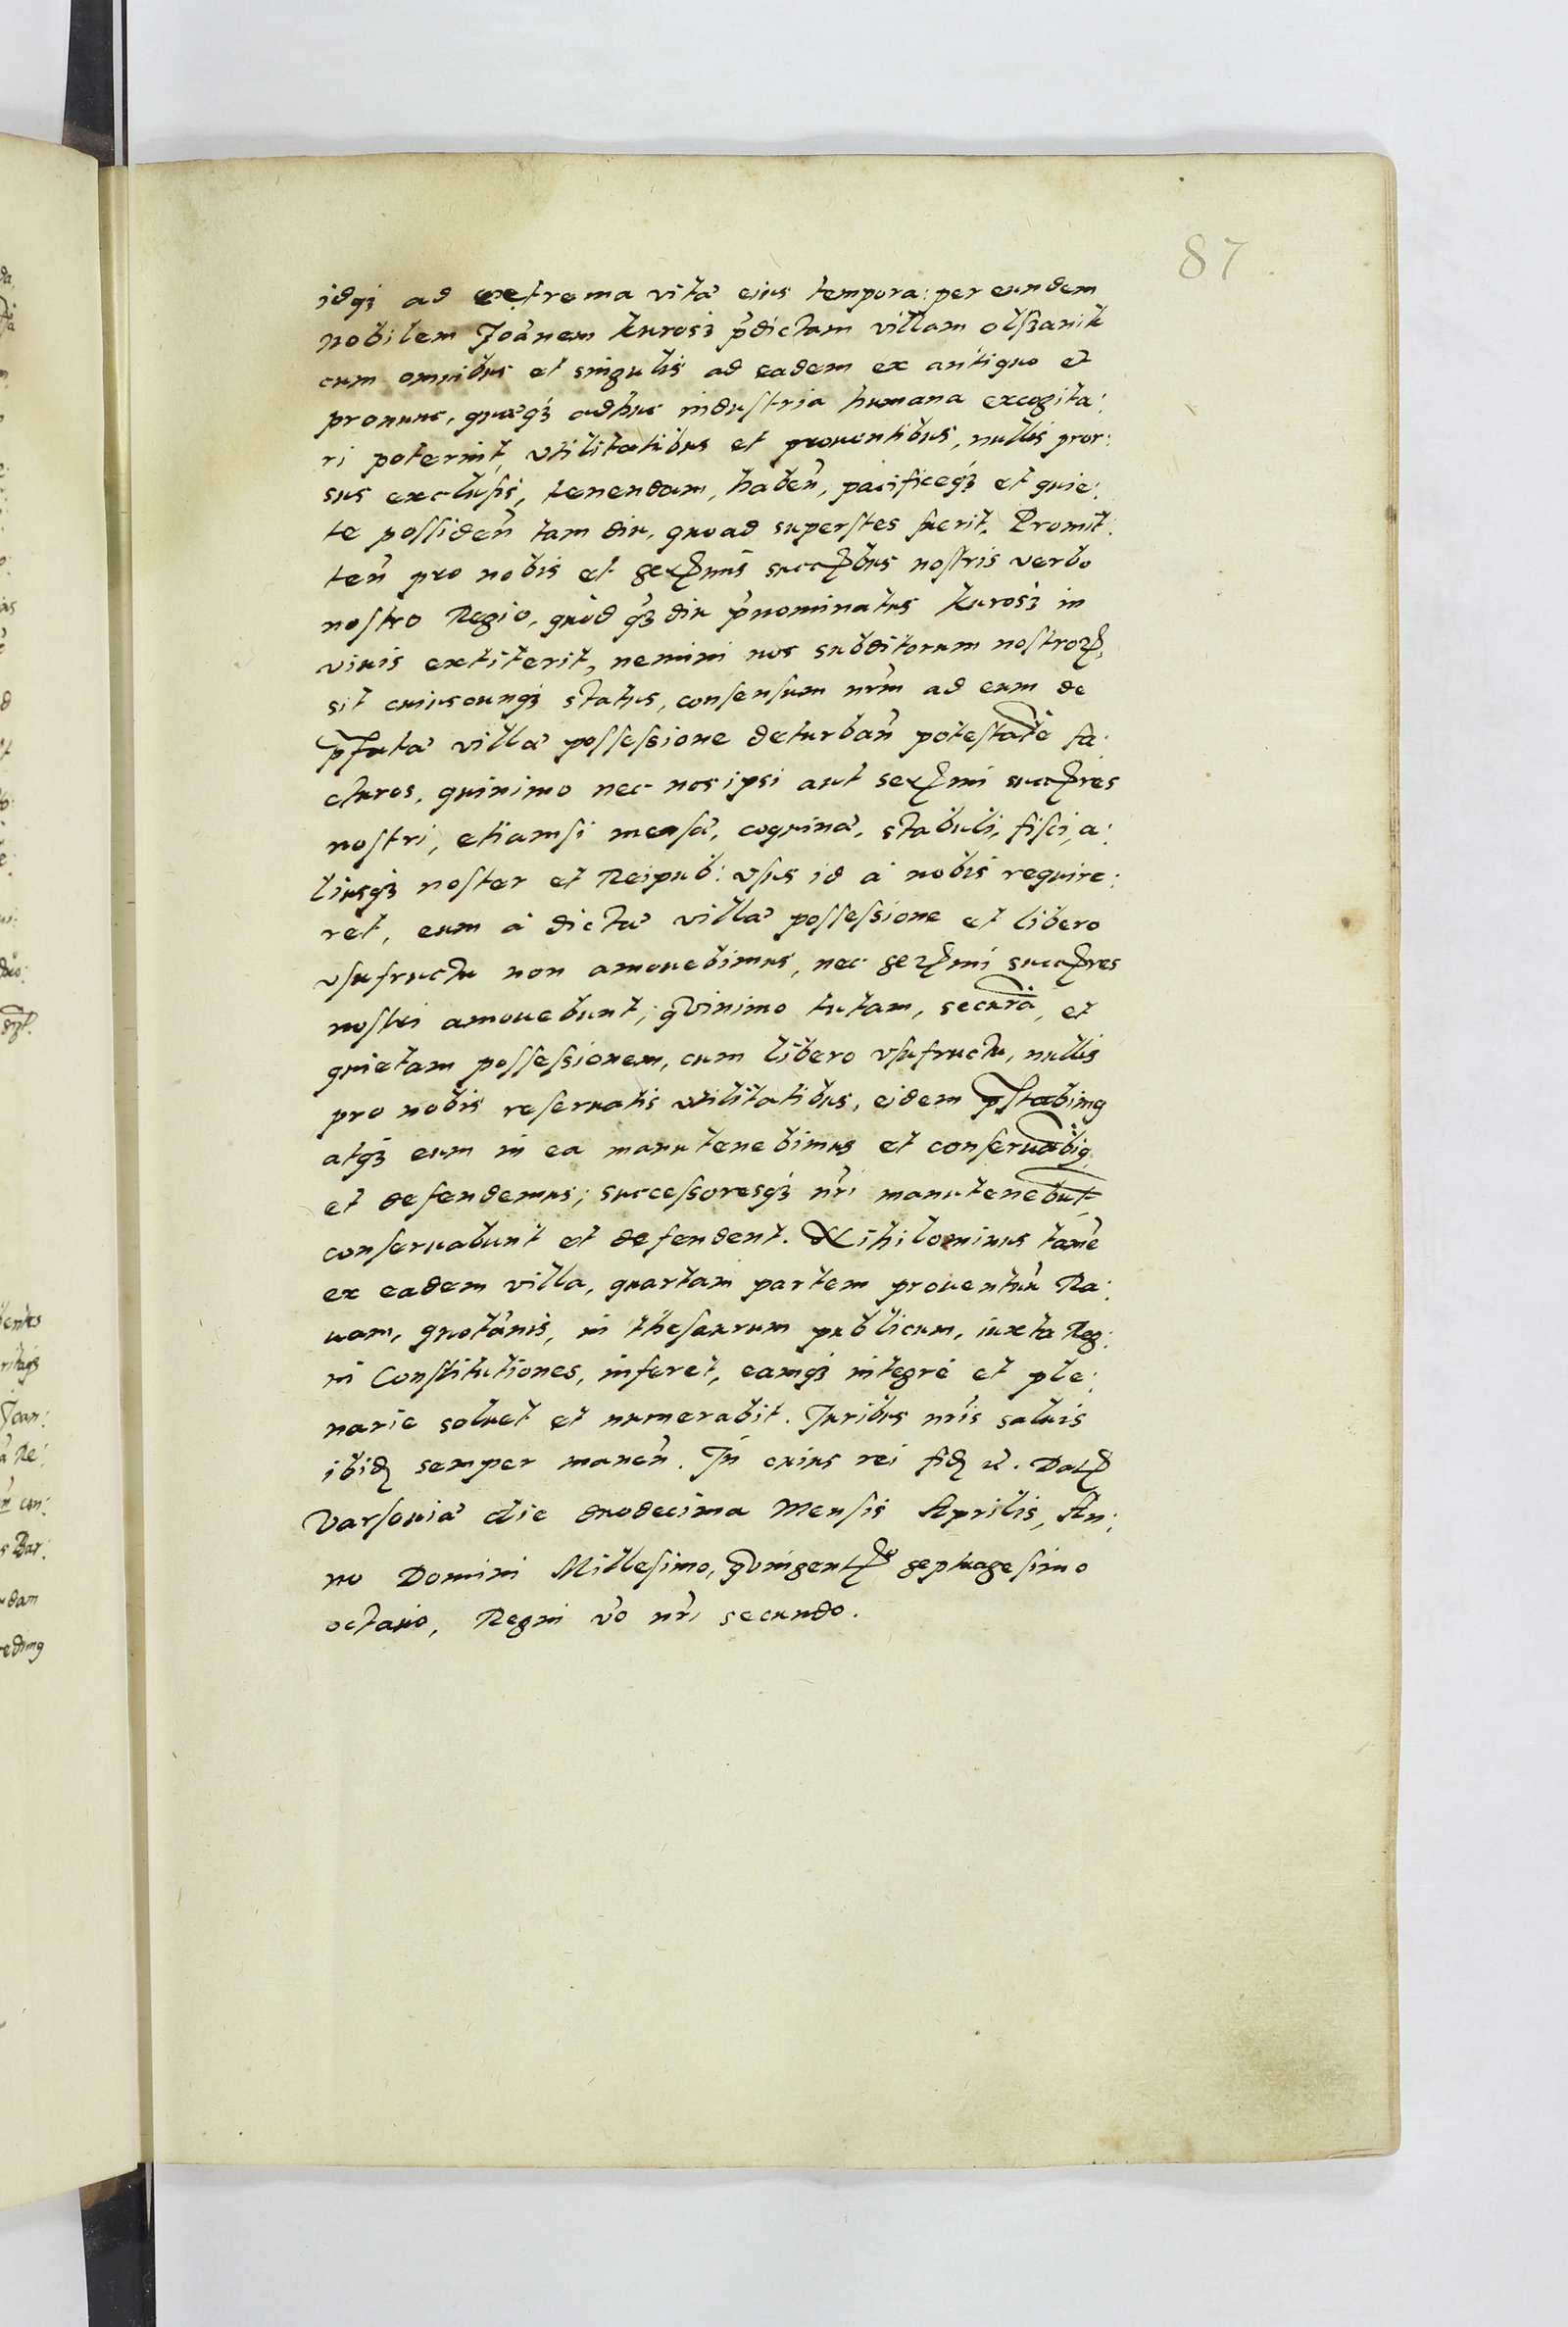 87
idqꝫ ad extrema vitæ eius tempora: per eundem
nobilem Joānem Kurosz p̄dictam villam olszanik
cum omnibus et singulis ad eadem ex antiquo et
pronunc, quæqꝫ adhuc industria humana excogita:
ri poterint, vtilitatibus et prouentibus, nullis pror:
sus exclusis, tenendam, haben̄, pacificeqꝫ et quie:
te possiden̄ tam diu, quoad superstes fuerit. Promit:
ten̄ pro nobis et serꝫmis succꝫbus nostris verbo
nostro Regio, quòd qꝫ diu p̄nominatus Kurosz in
viuis extiterit, nemini nos subditorum nostroꝝ,
sit cuiuscunqꝫ status, consensum nr̄m ad eum de
p̄fatæ villæ possessione deturban̄ potestatē fa:
cturos, quinimo nec nos ipsi aut serꝫmi succꝫres
nostri, etiamsi mensæ, coquinæ, stabuli, fisci, a:
liusqꝫ noster et Reipub: vsus id à nobis require:
ret, eum à dictæ villæ possessione et libero
vsufructu non amouebimus, nec serꝫmi succꝫres
nostri amouebunt; quinimo tutam, securā, et
quietam possessionem, cum libero vsufructu, nullis
pro nobis reseruatis vtilitatibus, eidem p̄stabimꝰ
atqꝫ eum in ea manutenebimus et conseruabīꝰ,
et defendemus; successoresqꝫ nr̄i manutenebūt,
conseruabunt et defendent. Nihilominus tamē
ex eadem villa, quartam partem prouentuū Ra:
uam, quotānis, in thesaurum publicum, iuxta Reg:
ni Constitutiones, inferet, eamqꝫ integrè et ple:
narie soluet et numerabit. Juribus nr̄is saluis
ibidꝫ semper manen̄. In cuius rei fidꝫ &c. Datꝫ
Varsouiæ die duodecima Mensis Aprilis, An:
no Domini Millesimo, quingentꝫo septuagesimo
octauo, Regni vō nr̄i secundo.